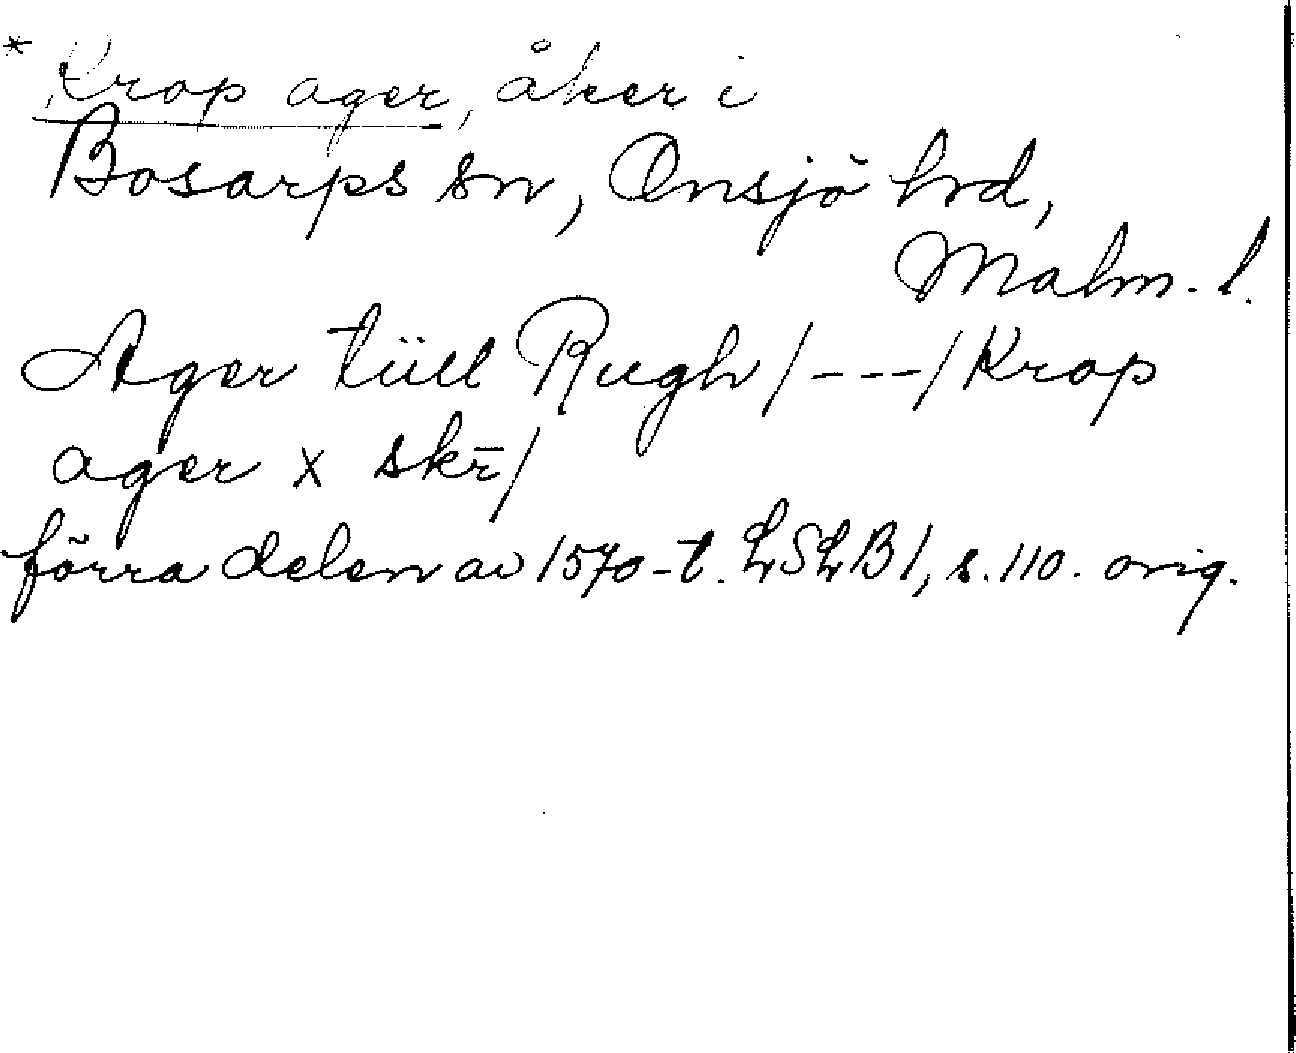 * Krop ager, åker i
Bosarps sn, Onsjö hrd,
Malm. l.
Ager tüll Rugh / - - - / Krop
ager x skr̄ /
förra delen av 1570-t. LSLB 1, s. 110. orig.